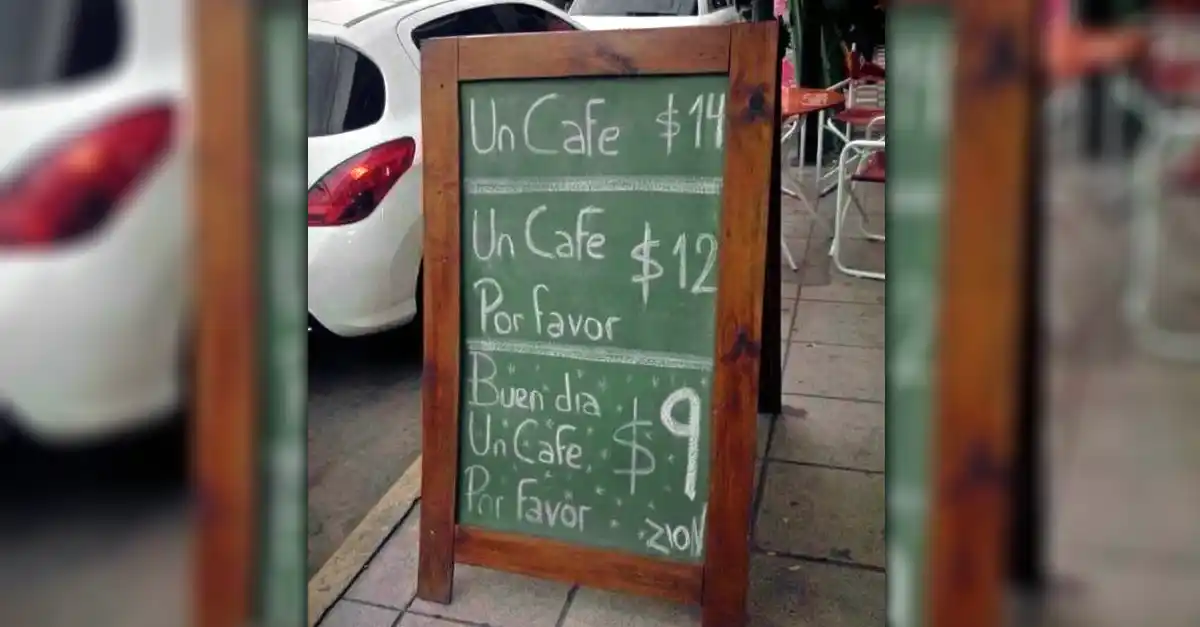 Un Cafe $14
Un Cafe $12
Por favor
Buen dia
Un Cafe $9
Por favor